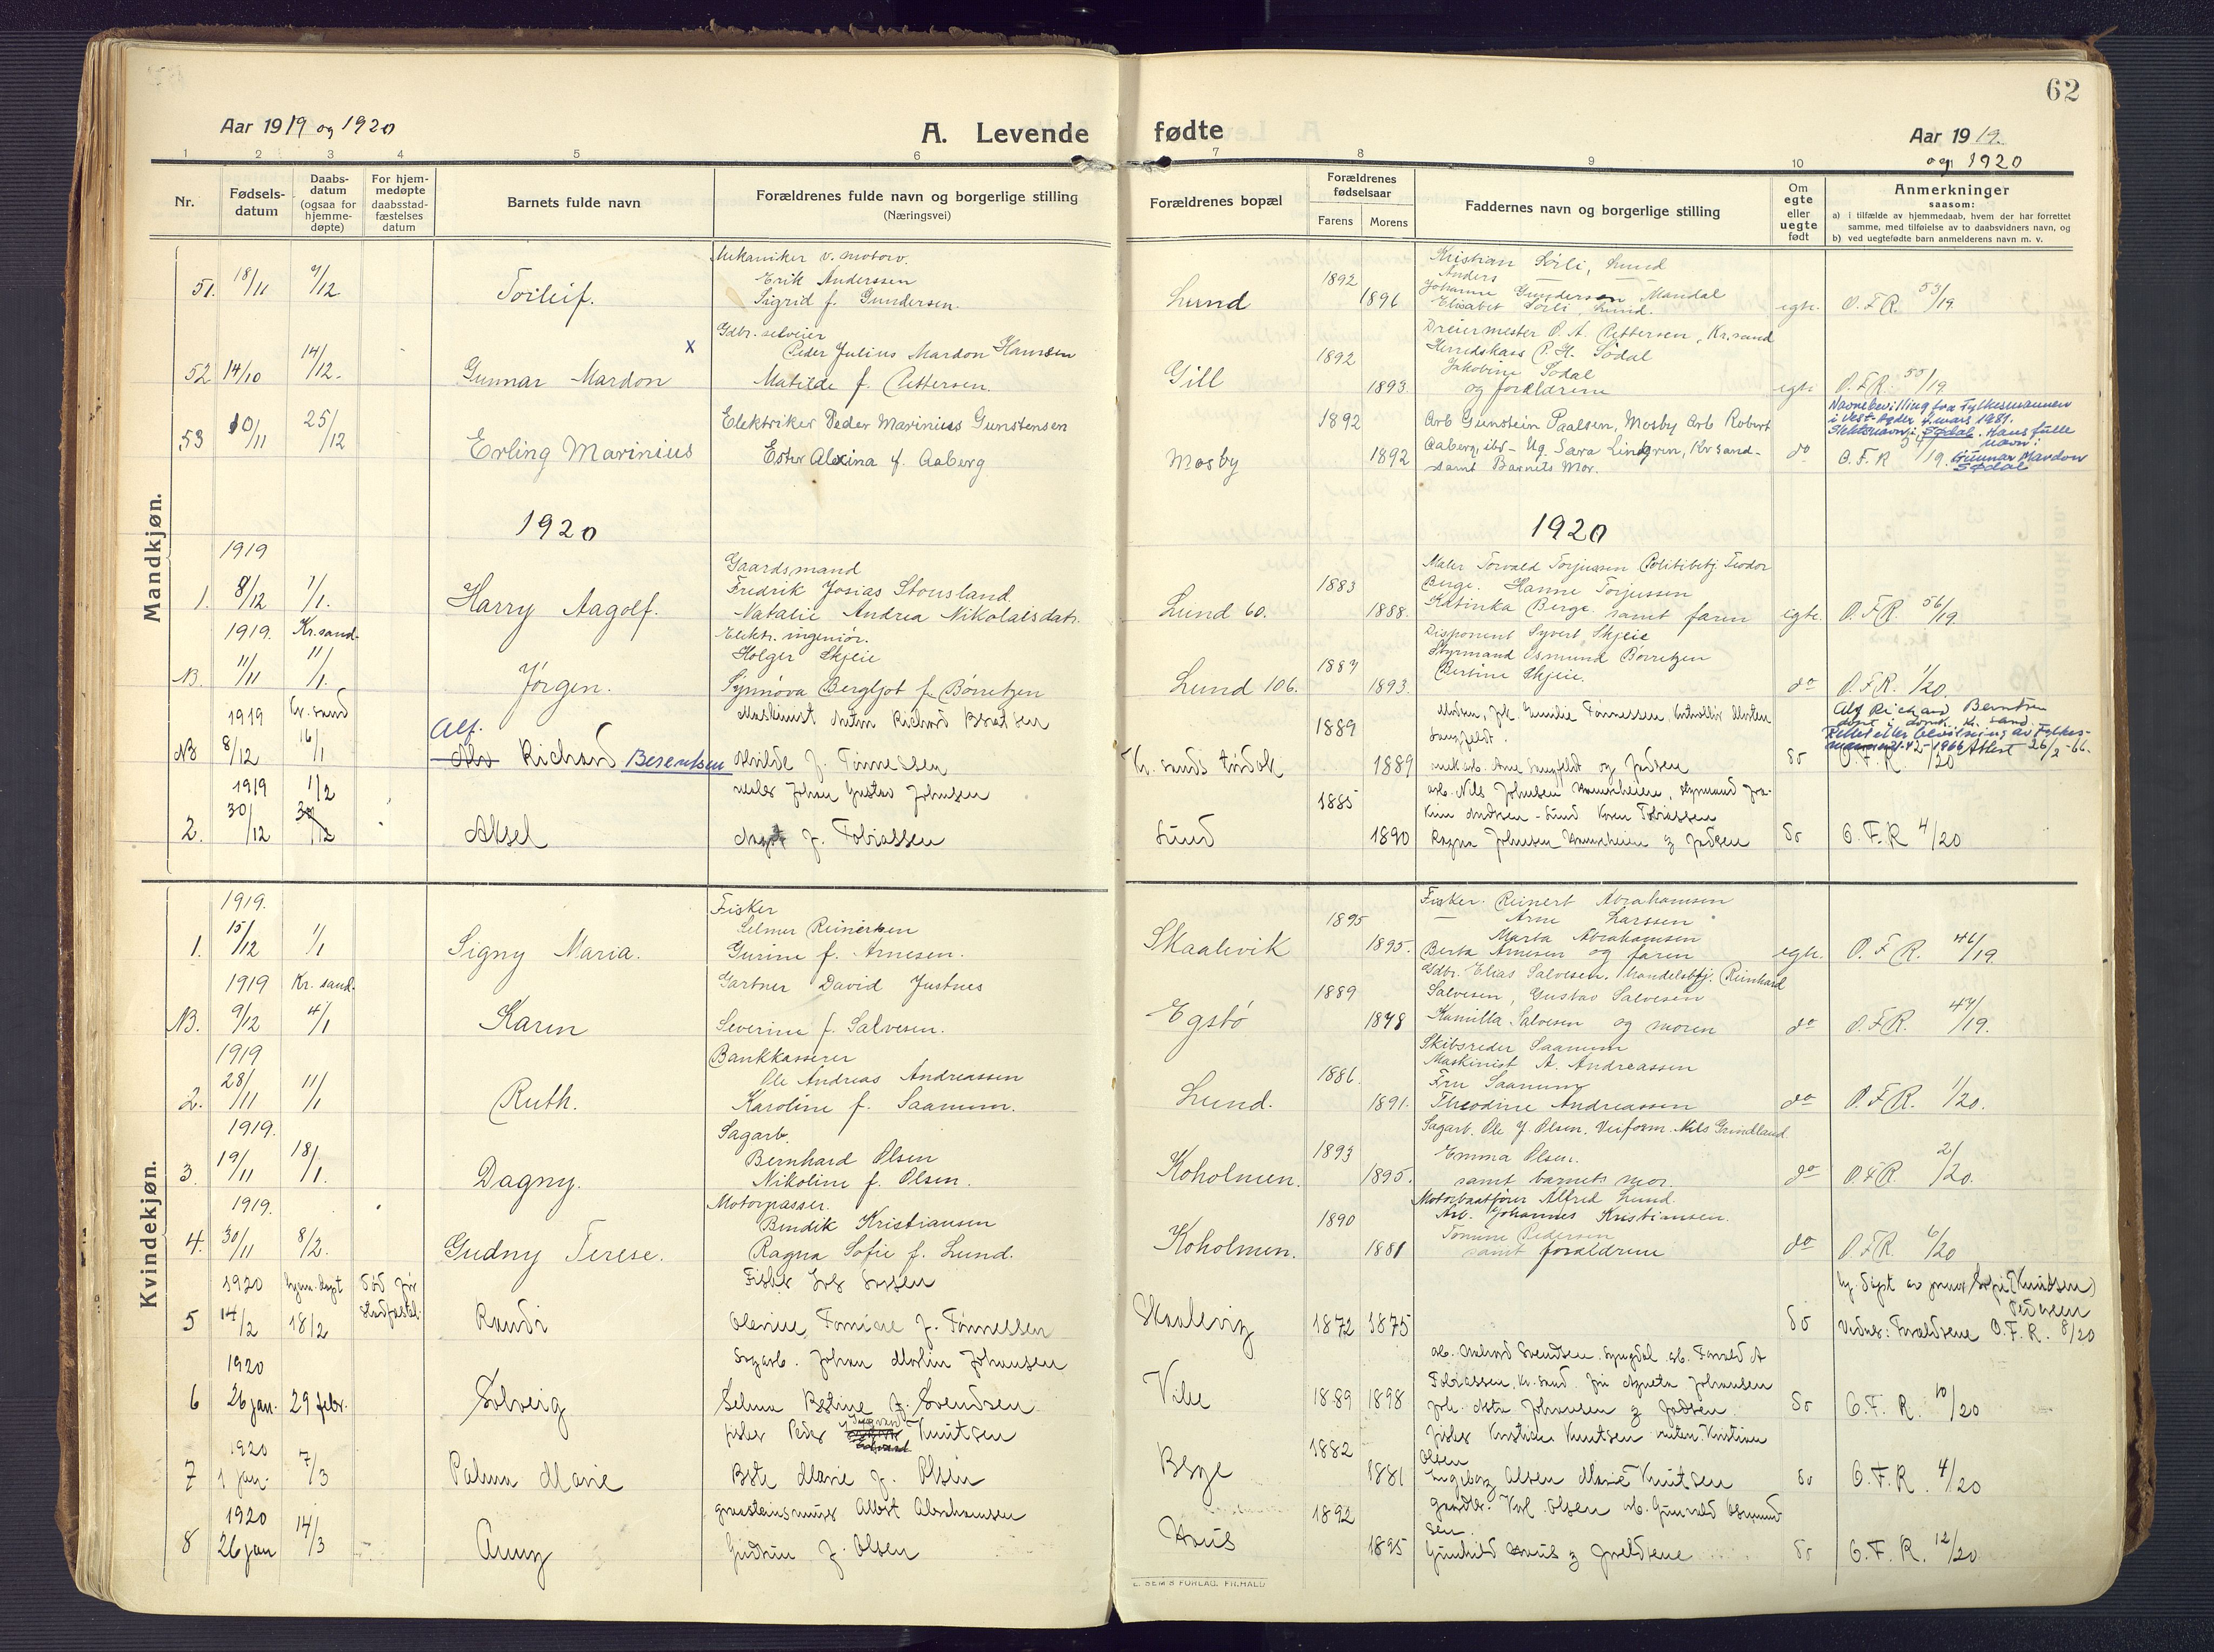 62
Aar 1919 og 1920
A. Levende fødte
Aar 1919.
og 1920
1 2 3 4 5 6 7 8 9 10
Nr.
Fødsels-
datum
Daabs-
datum
(ogsaa for
hjemme-
døpte)
For hjem-
medøpte
daabsstad-
fæstelses
datum
Barnets fulde navn
Forældrenes fulde navn og borgerlige stilling
(Næringsvei)
Forældrenes bopæl
Forældrenes
fødselsaar
Farens Morens
Faddernes navn og borgerlige stilling
Om
egte
eller
uegte
født
Anmerkninger
saasom:
a) i tilfælde av hjemmedaab, hvem der har forrettet
samme, med tilføielse av to daabsvidners navn, og
b) ved uegtefødte barn anmelderens navn m. v.
Mandkjøn.
51. 18/11 7/12 Torleif.
Mekaniker v. motorv.
Erik Anderssen
Sigrid f. Gundersen.
Lund 1892 1896
Kristian Sørli, Lund
Anders —
Johanne Gundersen Mandal
Elisabet Sørli, Lund.
egte. O.F.R. 53/19
52 14/10 14/12. Gunnar Mardon x
Gdbr. selveier
Peder Julius Mardon Hansen
Matilde f. Pettersen.
Gill 1892 1893.
Dreiermester O. A. Pettersen, Kr.sand
Herredskass P. H. Sødal
Jakobine Sødal
og forældrene
egte O.F.R. 55/19
Navnebevilling fra Fylkesmannen
i Vest-Agder 4 mars 1981.
Slektsnavn: Sødal. Hans fulle
navn:
Gunnar Mardon
Sødal
53 10/11 25/12 Erling Marinius
Elektriker Peder Marinius Gunstensen
Ester Alexina f. Aaberg
Mosby 1892 1892
Arb Gunstein Paalsen, Mosby Arb Robert
Aaberg, ibd – Ug. Sara Lindgren, Kr sand-
samt Barnets Mor.
do O.F.R /19.
1920 1920
1919
1. 8/12 1/1. Harry Aagolf.
Gaardsmand
Fredrik Josias Stousland.
Natalie Andrea Nikolaisdatr.
Lund 60. 1883 1888.
Maler Torvald Torjussen Politibetj. Teodor
Berge. Hanne Torjussen
Katinka Berge. samt faren
egte. O.F.R. 56/19
1919. Kr.sand.
N3. 11/11 11/1. Jørgen.
Elektr. ingeniør.
Holger Skjeie
Synnøva Bergljot f. Børretzen
Lund 106. 1887 1893.
Disponent Syvert Skjeie
Styrmand Osmund Børretzen
Bertine Skjeie.
do O.F.R. 1/20.
1919 Kr. sand
NB 8/12 16/1 Alf. Richard Berentsen
Maskinist Anton Richard
f. Tønnessen
1889 1889
Emilie Tønnessen,
do O.F.R /20
Alf Richard Berntsen
døpt i domk. Kr. sand.
Rettet etter bevilling av Fylkes-
mannen 1966 Attest 26/2-66.
1919 1/2
2. 30/12 30/12 Aksel
maler Johan Gustav Johnsen
f. Tobiassen
Lund 1885 1890
arb. Nils Johnsen
Ragna Johnsen
do O.F.R 4/20
Kvindekjøn.
1919.
1. 15/12 1/1 Signy Maria.
Fisker
Selmer Reinertsen
Gurine f. Arnesen.
Skaalevik 1895 1895.
Fisker. Reinert Abrahamsen
— Arne Larssen
Marta Abrahamsen
Berta Arnesen og faren
egte. O.F.R. 46/19
1919 Kr. sand.
N3. 9/12 4/1 Karin
Gartner David Justnes
Severine f. Salvesen.
Egstø 1889 1878
Gdbr. Elias Salvesen. Handelsbtj. Reinhard
Salvesen, Gustav Salvesen
Kamilla Salvesen og moren
do O.F.R. 47/19.
1919
2. 28/11 11/1 Ruth.
Bankkasserer
Ole Andreas Andreassen
Karoline f. Saanum.
Lund. 1886. 1891.
Skibsreder Saanum
Maskinist A. Andreassen
Fru Saanum
Theodine Andreassen
do O.F.R. 1/20.
1919.
3. 19/11 18/1. Dagny.
Sagarb.
Bernhard Olsen
Nikoline f. Olsen.
Koholmen. 1893 1895.
Sagarb. Ole J. Olsen. Veiform. Nils Grindland
Emma Olsen.
samt barnets mor.
do O.F.R. 2/20.
1919.
4. 30/11 8/2. Gudny Terese.
Motorpasser.
Bendik Kristiansen
Ragna Sofie f. Lund.
Koholmen. 1890 1881
Motorbaatfører Alfred Lund.
Arb. Johannes Kristiansen.
Tomine Pedersen
samt forældrene
do O.F.R. 6/20
1920 hjem.døpt Død før
5 14/2 18/2 stadfæstel. Randi
Fisker
f. Tønnessen
Skaalevig 1872 1875 do
hj. døpt av jormor Sofie (Knudsen)
Pedersen
Vidner: Forældrene O.F.R. 8/20
1920
6 26 jan. 29 febr. Solveig
Sagarb. Johan Martin Johansen
Selma Bertine f. Svendsen
1889 1898
arb. Svendsen
Tobiassen, Kr. sand. fru Agneta Johansen
do O.F.R. 10/20
1920
7 1 jan. 7/3 Palma Marie
fisker Peder Knutsen
Berte Marie f. Olsen
Berge 1882 1881
fisker Kristian Knutsen Kristian
Olsen
Ingeborg Olsen Marie Knutsen
do O.F.R. 4/20
1920
8 26 jan 14/3 Anny
graasteinsmurer Albert Abrahamsen
Gudrun f. Olsen
1892 1895
gaardbr. Karl Olsen arb. Gunvald Osmund-
sen.
Gunhild og foreldrene
do O.F.R. 12/20
E. SEM'S FORLAG, FR.HALD